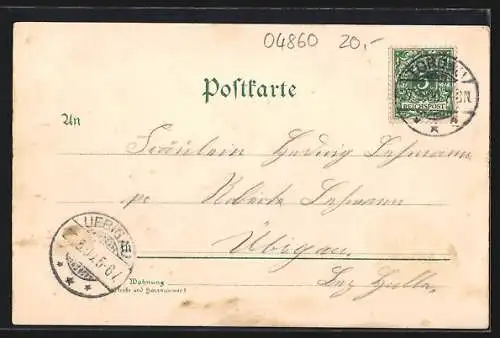 04860 20,-
Postkarte
TORGAU
5
REICHSPOST
An
Fräulein Hedwig Lehmann
pr Lehmann
Übigau.
UEBIGAU
Bez Halle.
Wohnung
(Straße und Hausnummer)